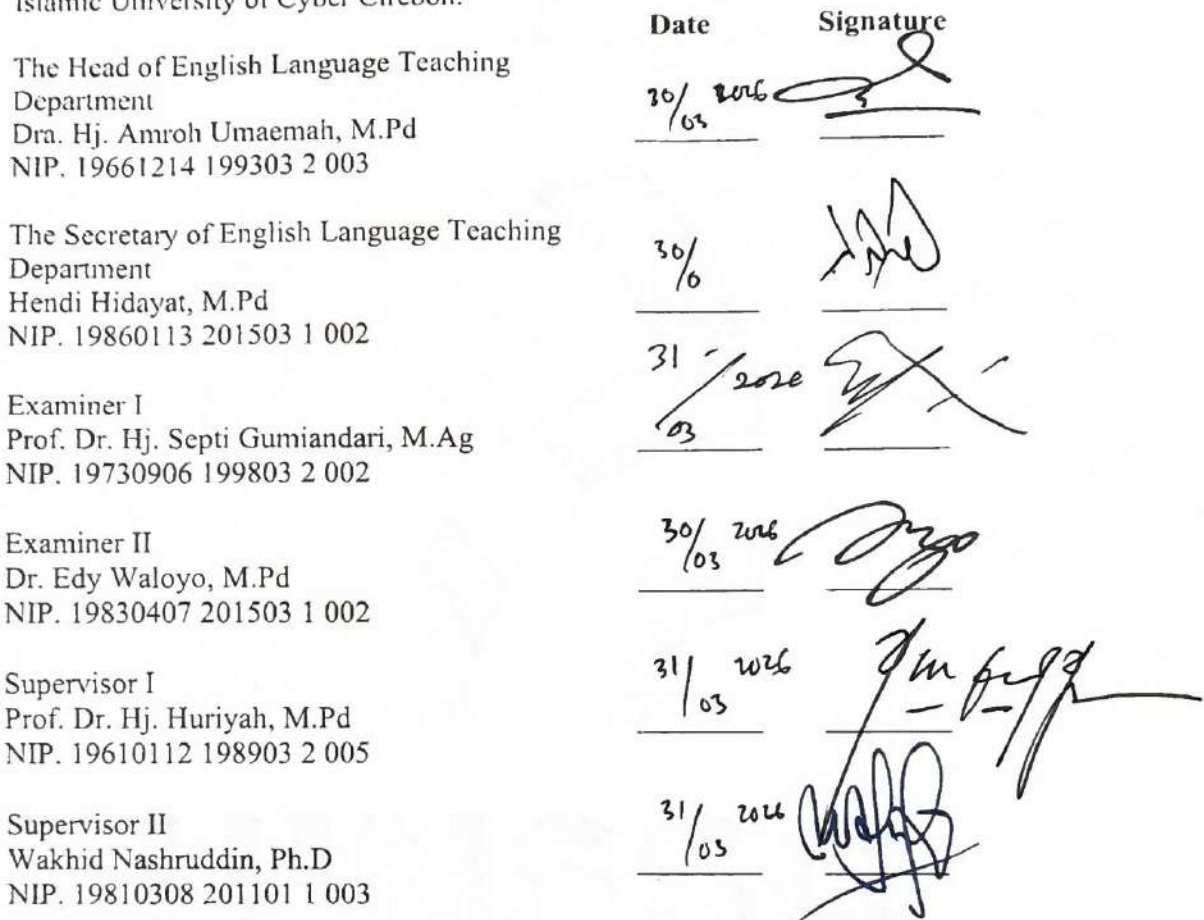 Islamic University of Cyber Cirebon.
Date Signature
The Head of English Language Teaching
Department
Dra. Hj. Amroh Umaemah, M.Pd
NIP. 19661214 199303 2 003
30/03 2026
The Secretary of English Language Teaching
Department
Hendi Hidayat, M.Pd
NIP. 19860113 201503 1 002
30/0
Examiner I
Prof. Dr. Hj. Septi Gumiandari, M.Ag
NIP. 19730906 199803 2 002
31/03
Examiner II
Dr. Edy Waloyo, M.Pd
NIP. 19830407 201503 1 002
30/03 2026
Supervisor I
Prof. Dr. Hj. Huriyah, M.Pd
NIP. 19610112 198903 2 005
31/03 2026
Supervisor II
Wakhid Nashruddin, Ph.D
NIP. 19810308 201101 1 003
31/03 2026